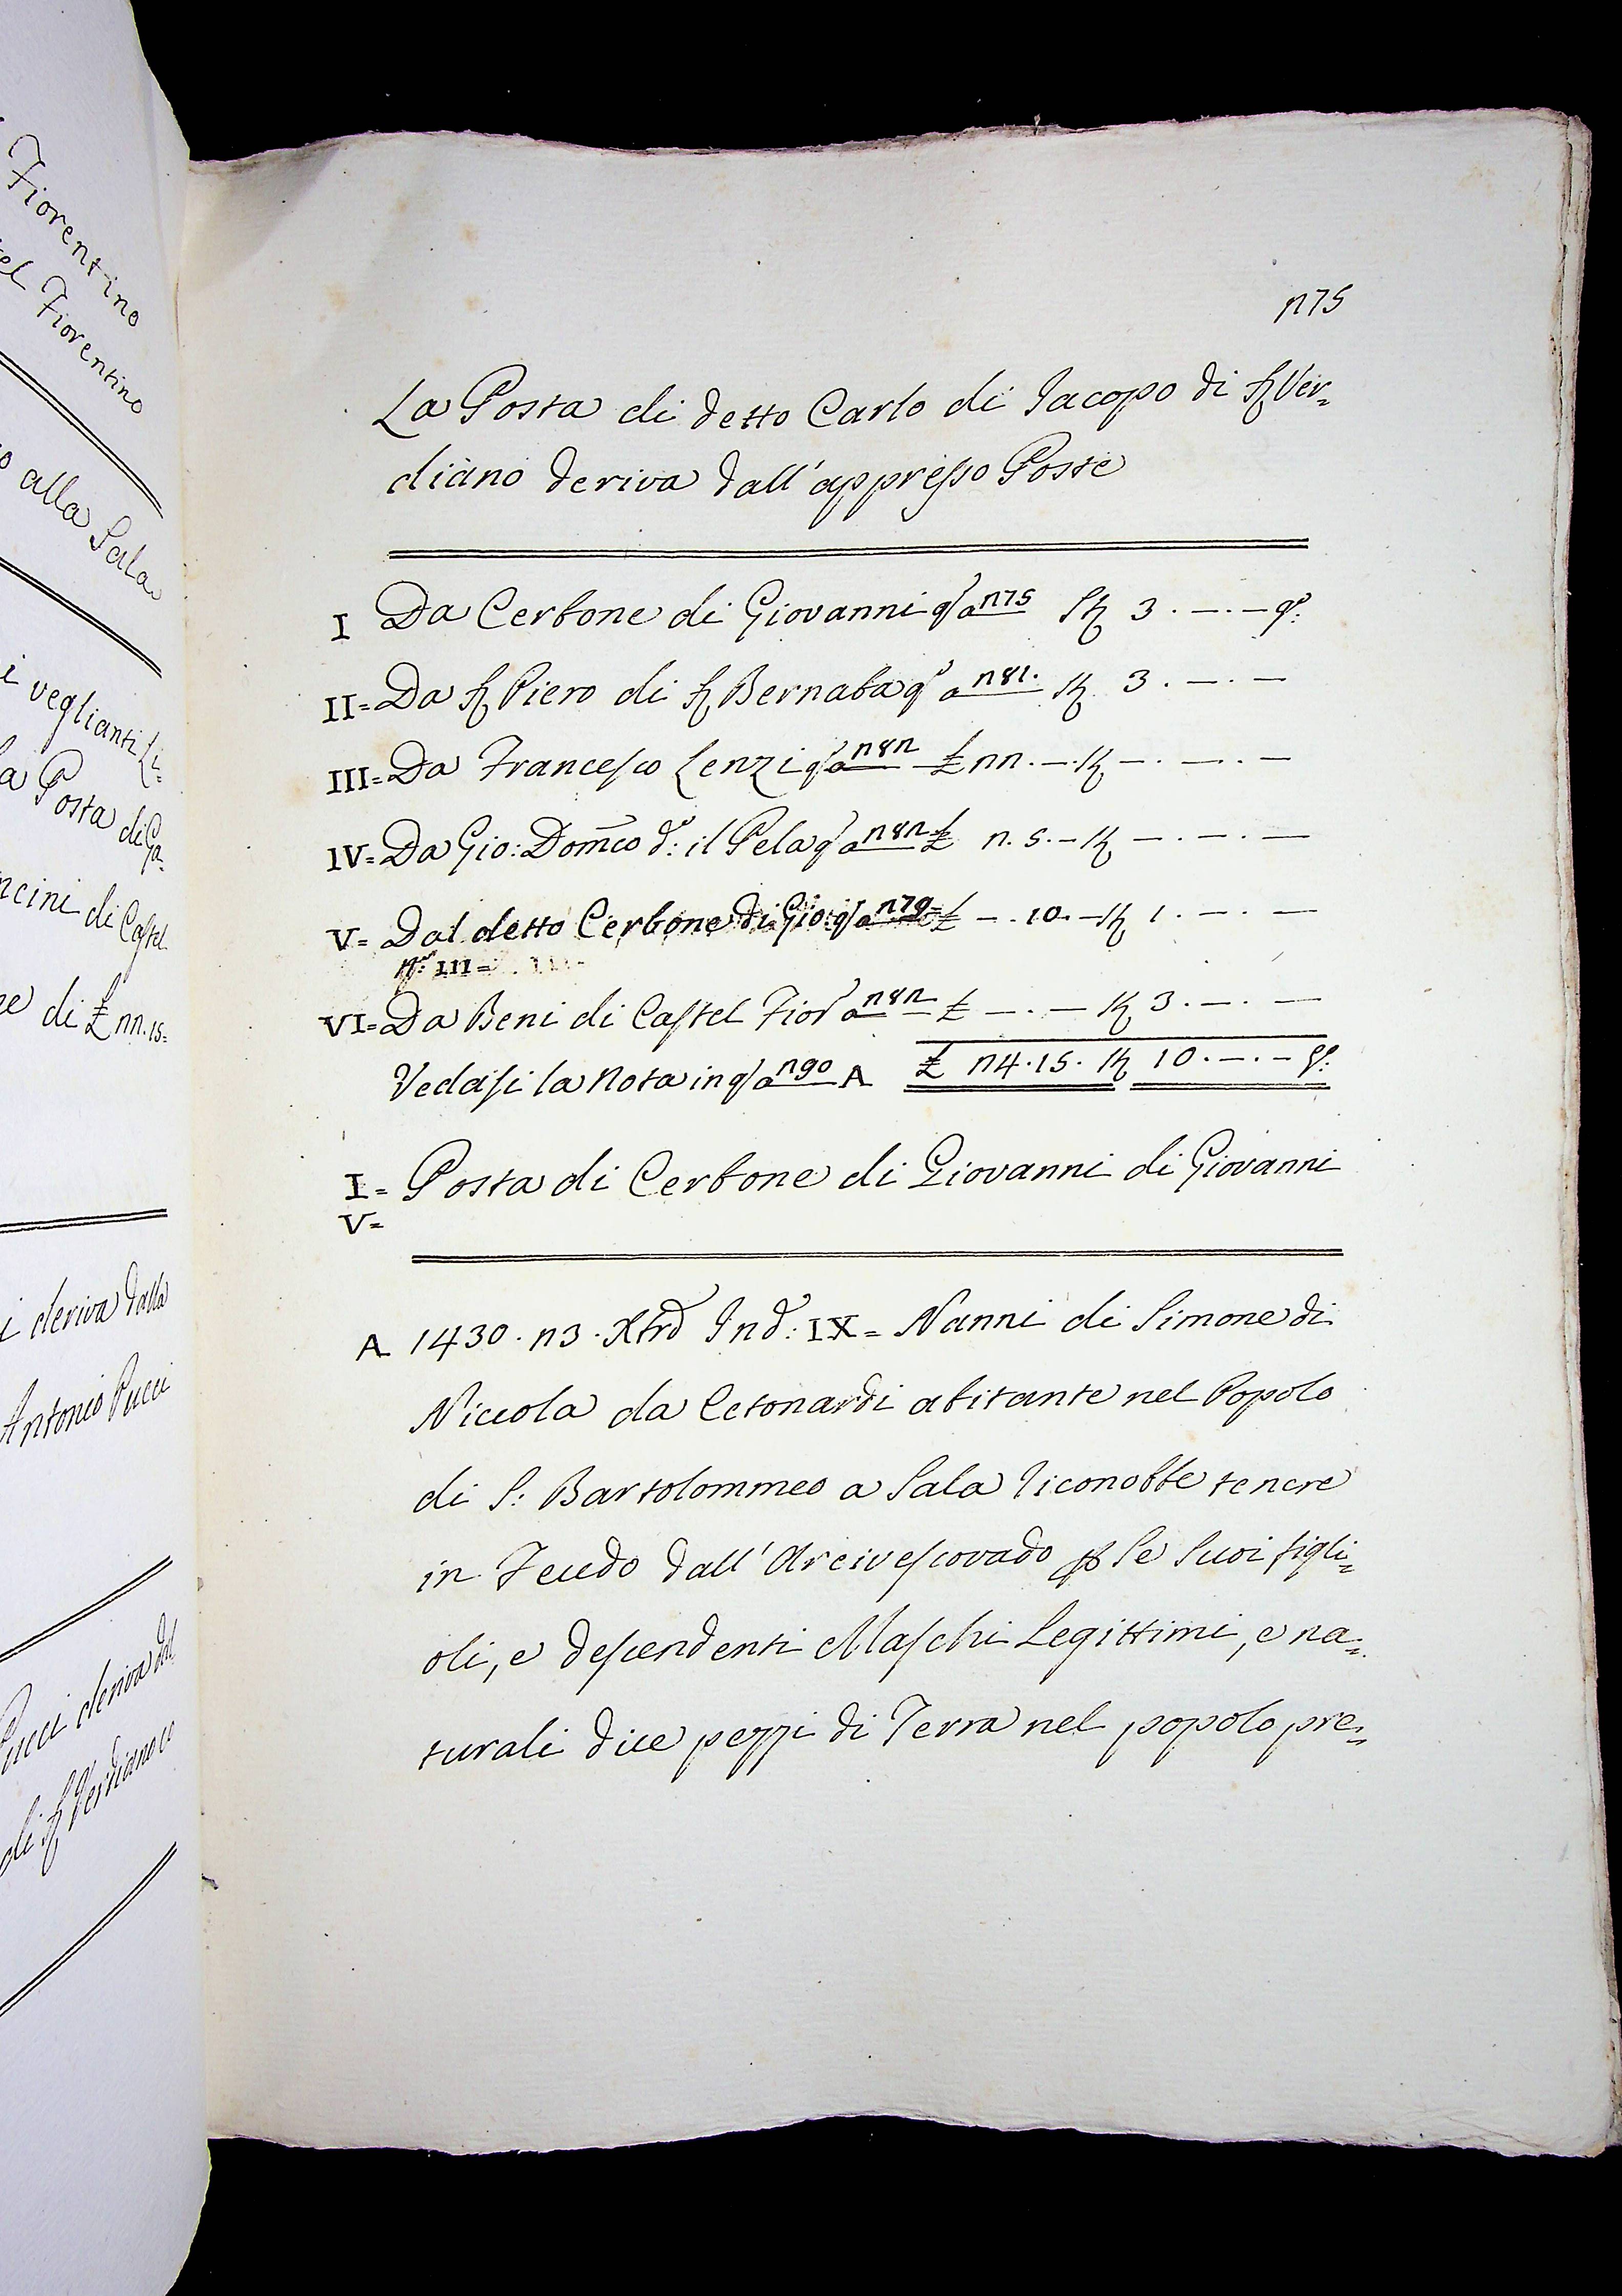 Fiorentino
el Fiorentino
o alla Sala
i veglianti Li=
la Posta di Ga=
ncini di Castel
ne di £ 22.15=
i deriva dalla
Antonio Pucci
Pucci deriva dal
di Sr Verdiano
275
La Posta di detto Carlo di Jacopo di Sr Ver=
diano deriva dall'appresso Poste
I Da Cerbone di Giovanni qo a 275 St 3 . — . — go:
II= Da Sr Piero di Sr Bernaba qo a 281. St 3 . — . —
III= Da Francesco Lenzi qo a 282 £ 22. — . St — . — . —
IV= Da Gio: Domco do: il Pela qo a 282 £ 2. 5. — St — . — . —
V= Dal detto Cerbone di Gio: qo a 279= £ — . 10. — St 1 . — . —
No: III=
VI= Da Beni di Castel Fiorno a 282 £ — . — St 3 . — . —
Vedasi la Nota in qo a 290 A £ 24.15. St 10 . — . — go:
I= Posta di Cerbone di Giovanni di Giovanni
V=
A 1430. 23. Xbre Ind: IX= Nanni di Simone di
Niccola da Cetonardi abitante nel Popolo
di S: Bartolommeo a Sala riconobbe tenere
in Feudo dall'Arcivescovado p Se Suoi figli=
oli, e descendenti Maschi Legittimi, e na=
turali due pezzi di Terra nel popolo pre=